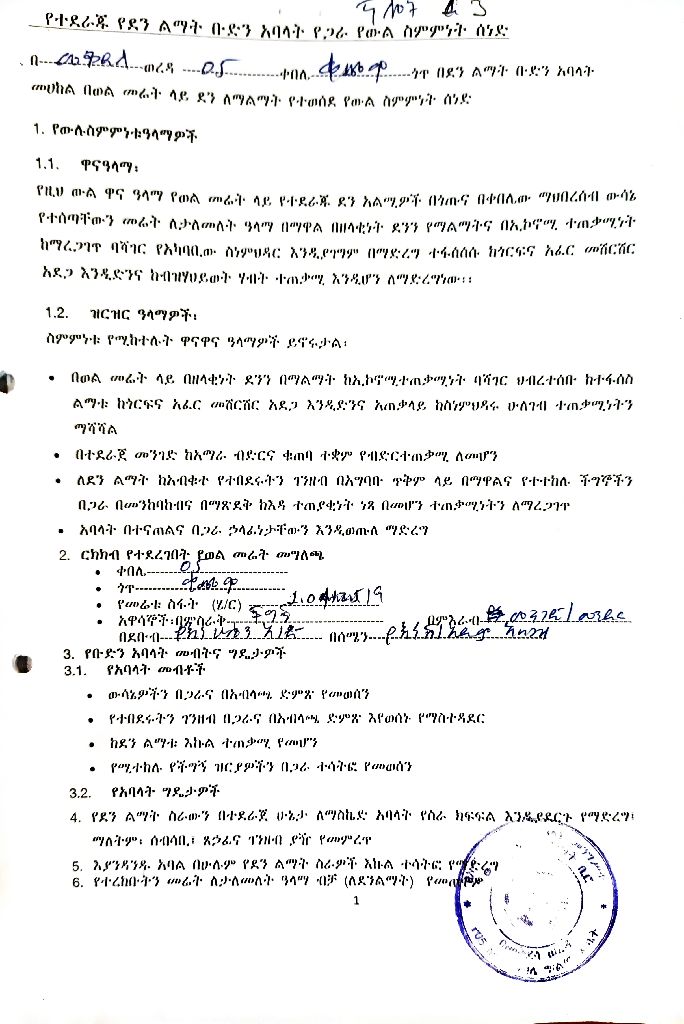 የተደራጁ የደን ልማት ቡድን አባላት የጋራ የውል ስምምነት ሰነድ
በ ወረዳ 05 ቀበሌ ጎጥ በደን ልማት ቡድን አባላት
መሀከል በወል መሬት ላይ ደን ለማልማት የተወሰደ የውል ስምምነት ሰነድ
1. የውሉስምምነቱዓላማዎች
1.1. ዋናዓላማ፡
የዚህ ውል ዋና ዓላማ የወል መሬት ላይ የተደራጁ ደን አልሚዎች በጎጡና በቀበሌው ማህበረሰብ ውሳኔ
የተሰጣቸውን መሬት ለታለመለት ዓላማ በማዋል በዘላቂነት ደንን የማልማትና በኢኮኖሚ ተጠቃሚነት
ከማረጋገጥ ባሻገር የአካባቢው ስነምህዳር እንዲያገግም በማድረግ ተፋሰሰሱ ከጎርፍና አፈር መሸርሸር
አደጋ እንዲድንና ከብዝሃህይወት ሃብት ተጠቃሚ እንዲሆን ለማድረግነው፡፡
1.2. ዝርዝር ዓላማዎች፡
ስምምነቱ የሚከተሉት ዋናዋና ዓላማዎች ይኖሩታል፡
• በወል መሬት ላይ በዘላቂነት ደንን በማልማት ከኢኮኖሚተጠቃሚነት ባሻገር ህብረተሰቡ ከተፋሰስ
ልማቱ ከጎርፍና አፈር መሸርሸር አደጋ እንዲድንና አጠቃላይ ከስነምህዳሩ ሁለገብ ተጠቃሚነትን
ማሻሻል
• በተደራጀ መንገድ ከአማራ ብድርና ቁጠባ ተቋም የብድርተጠቃሚ ለመሆን
• ለደን ልማት ከአብቁተ የተበደሩትን ገንዘብ በአግባቡ ጥቅም ላይ በማዋልና የተተከሉ ችግኞችን
በጋራ በመንከባከብና በማጽደቅ ከእዳ ተጠያቂነት ነጻ በመሆን ተጠቃሚነትን ለማረጋገጥ
• አባላት በተናጠልና በጋራ ኃላፊነታቸውን እንዲወጡለ ማድረግ
2. ርክክብ የተደረገበት የወል መሬት መግለጫ
• ቀበሌ 05
• ጎጥ
• የመሬቱ ስፋት (ሄ/ር)
• አዋሳኞች፡በምስራቅ በምእራብ
በደቡብ በሰሜን
3. የቡድን አባላት መብትና ግዴታዎች
3.1. የአባላት መብቶች
• ውሳኔዎችን በጋራና በአብላጫ ድምጽ የመወሰን
• የተበደሩትን ገንዘብ በጋራና በአብላጫ ድምጽ እየወሰኑ የማስተዳደር
• ከደን ልማቱ እኩል ተጠቃሚ የመሆን
• የሚተከሉ የችግኝ ዝርያዎችን በጋራ ተሳትፎ የመወሰን
3.2. የአባላት ግዴታዎች
4. የደን ልማት ስራውን በተደራጀ ሁኔታ ለማስኬድ አባላት የስራ ክፍፍል እንዲያደርጉ የማድረግ፤
ማለትም፡ ሰብሳቢ፣ ጸኃፊና ገንዘብ ያዥ የመምረጥ
5. እያንዳንዱ አባል በሁሉም የደን ልማት ስራዎች እኩል ተሳትፎ የማድረግ
6. የተረከቡትን መሬት ለታለመለት ዓላማ ብቻ (ለደንልማት)
1